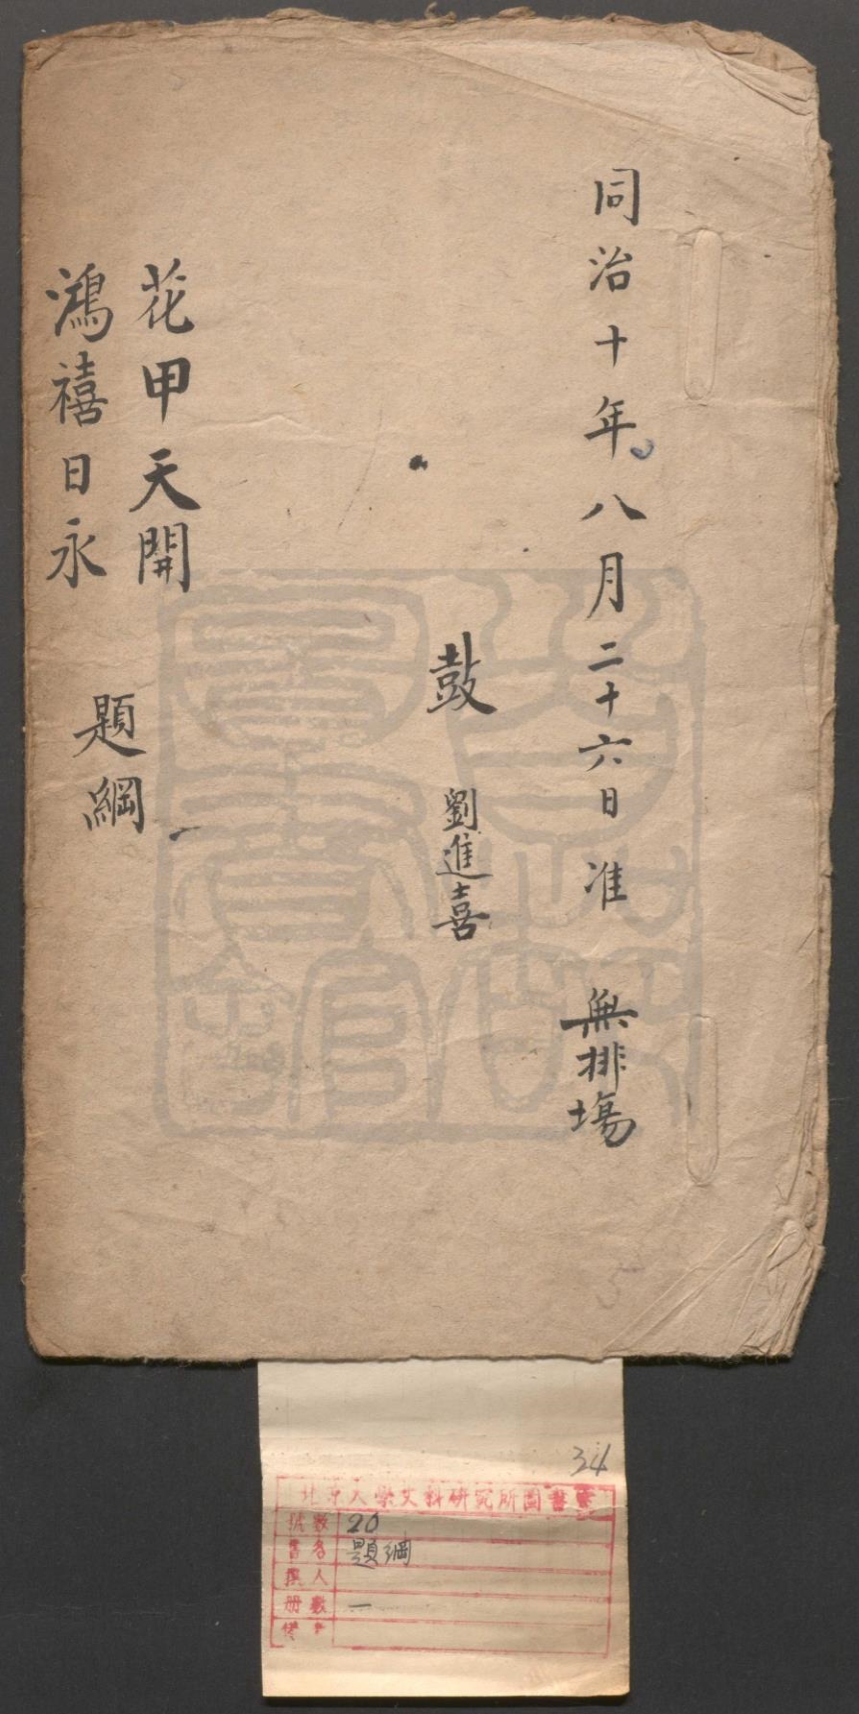 同治十年八月二十六日准 無排場
鼓 劉進喜
花甲天開
鴻禧日永
題綱
34
北京大學文科研究所圖書室
號數 20
書名 題綱
撰人
册數 一